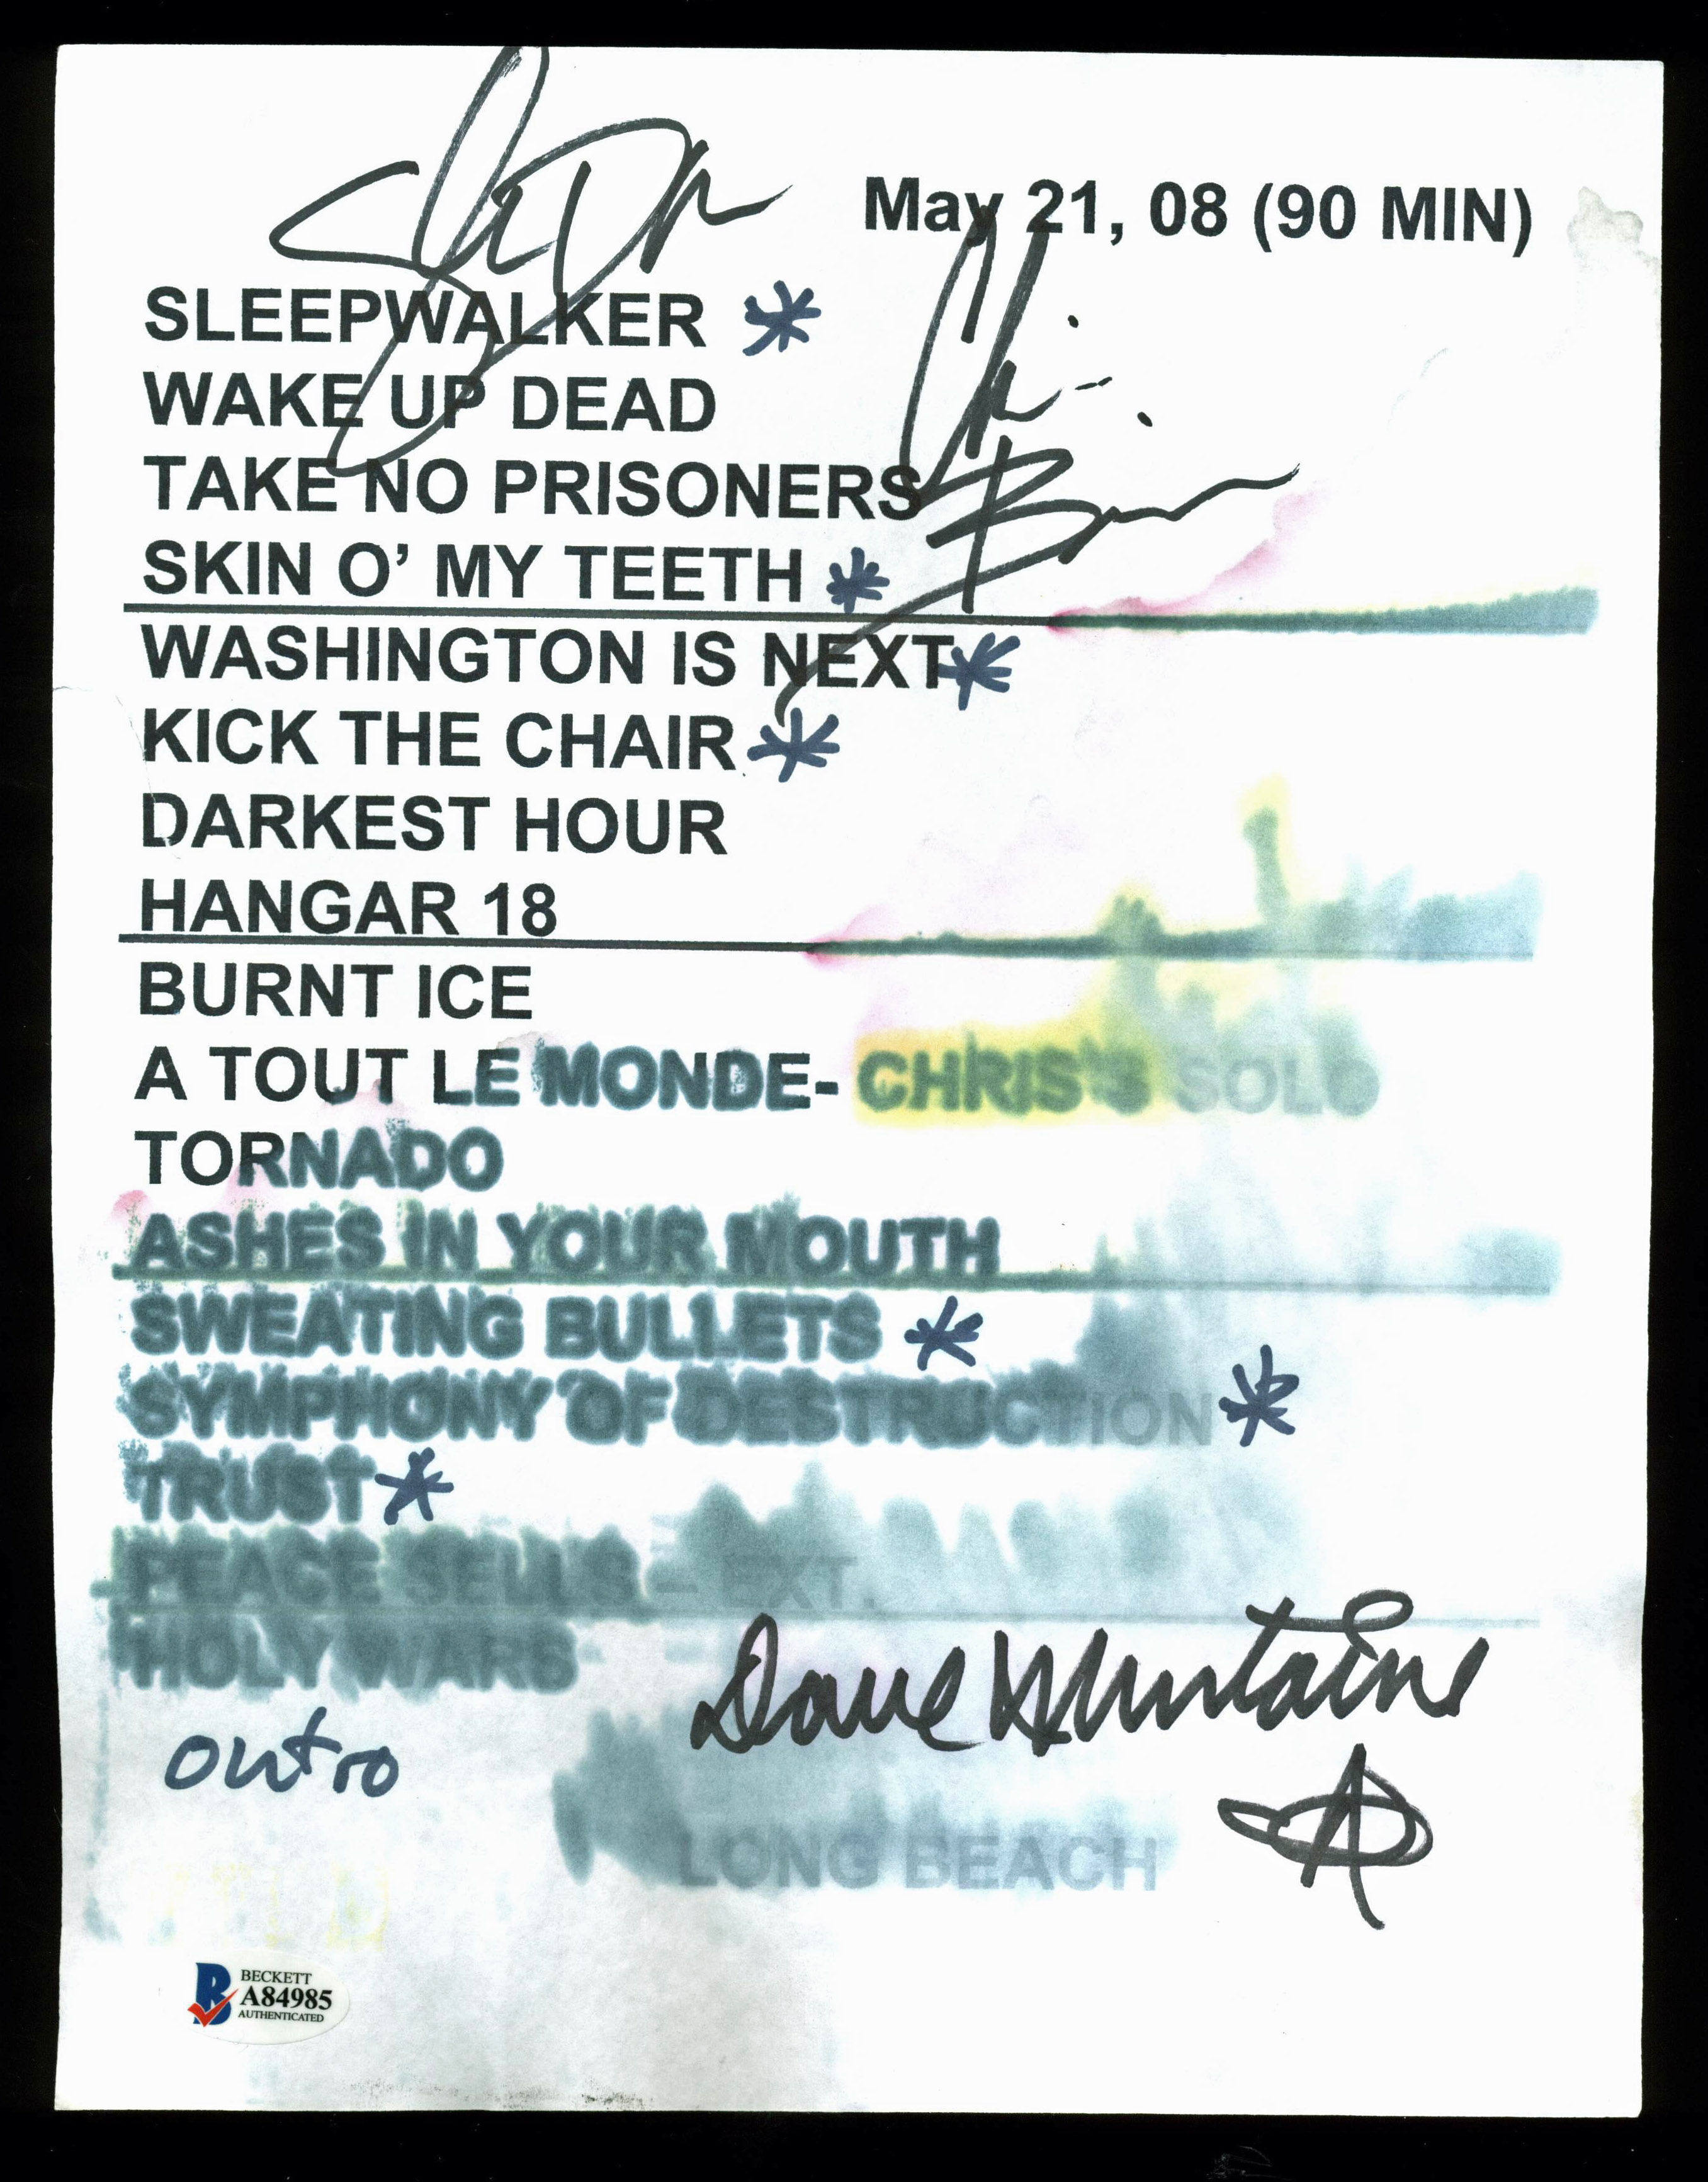 May 21, 08 (90 MIN)
SLEEPWALKER *
WAKE UP DEAD
TAKE NO PRISONERS
SKIN O’ MY TEETH *
WASHINGTON IS NEXT *
KICK THE CHAIR *
DARKEST HOUR
HANGAR 18
BURNT ICE
A TOUT LE MONDE- CHRIS'S SOLO
TORNADO
ASHES IN YOUR MOUTH
SWEATING BULLETS *
SYMPHONY OF DESTRUCTION *
TRUST *
PEACE SELLS – EXT.
HOLY WARS
Dave Mustaine
outro
LONG BEACH
BECKETT
A84985
AUTHENTICATED